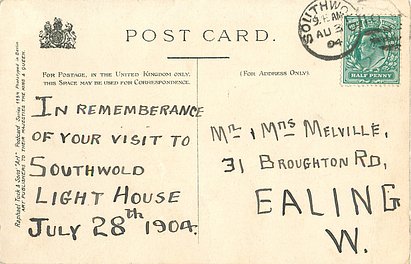 POST CARD.
FOR POSTAGE, IN THE UNITED KINGDOM ONLY,
THIS SPACE MAY BE USED FOR CORRESPONDENCE.
(FOR ADDRESS ONLY.)
IN REMEMBERANCE
OF YOUR VISIT TO
SOUTHWOLD
LIGHT HOUSE
JULY 28th 1904.
Mr & Mrs MELVILLE,
31 BROUGHTON RD,
EALING
W.
Raphael Tuck & Sons' "Art" Postcard Series
ART PUBLISHERS TO THEIR MAJESTIES THE KING & QUEEN.
SOUTHWO
AU 3
04
HALF PENNY